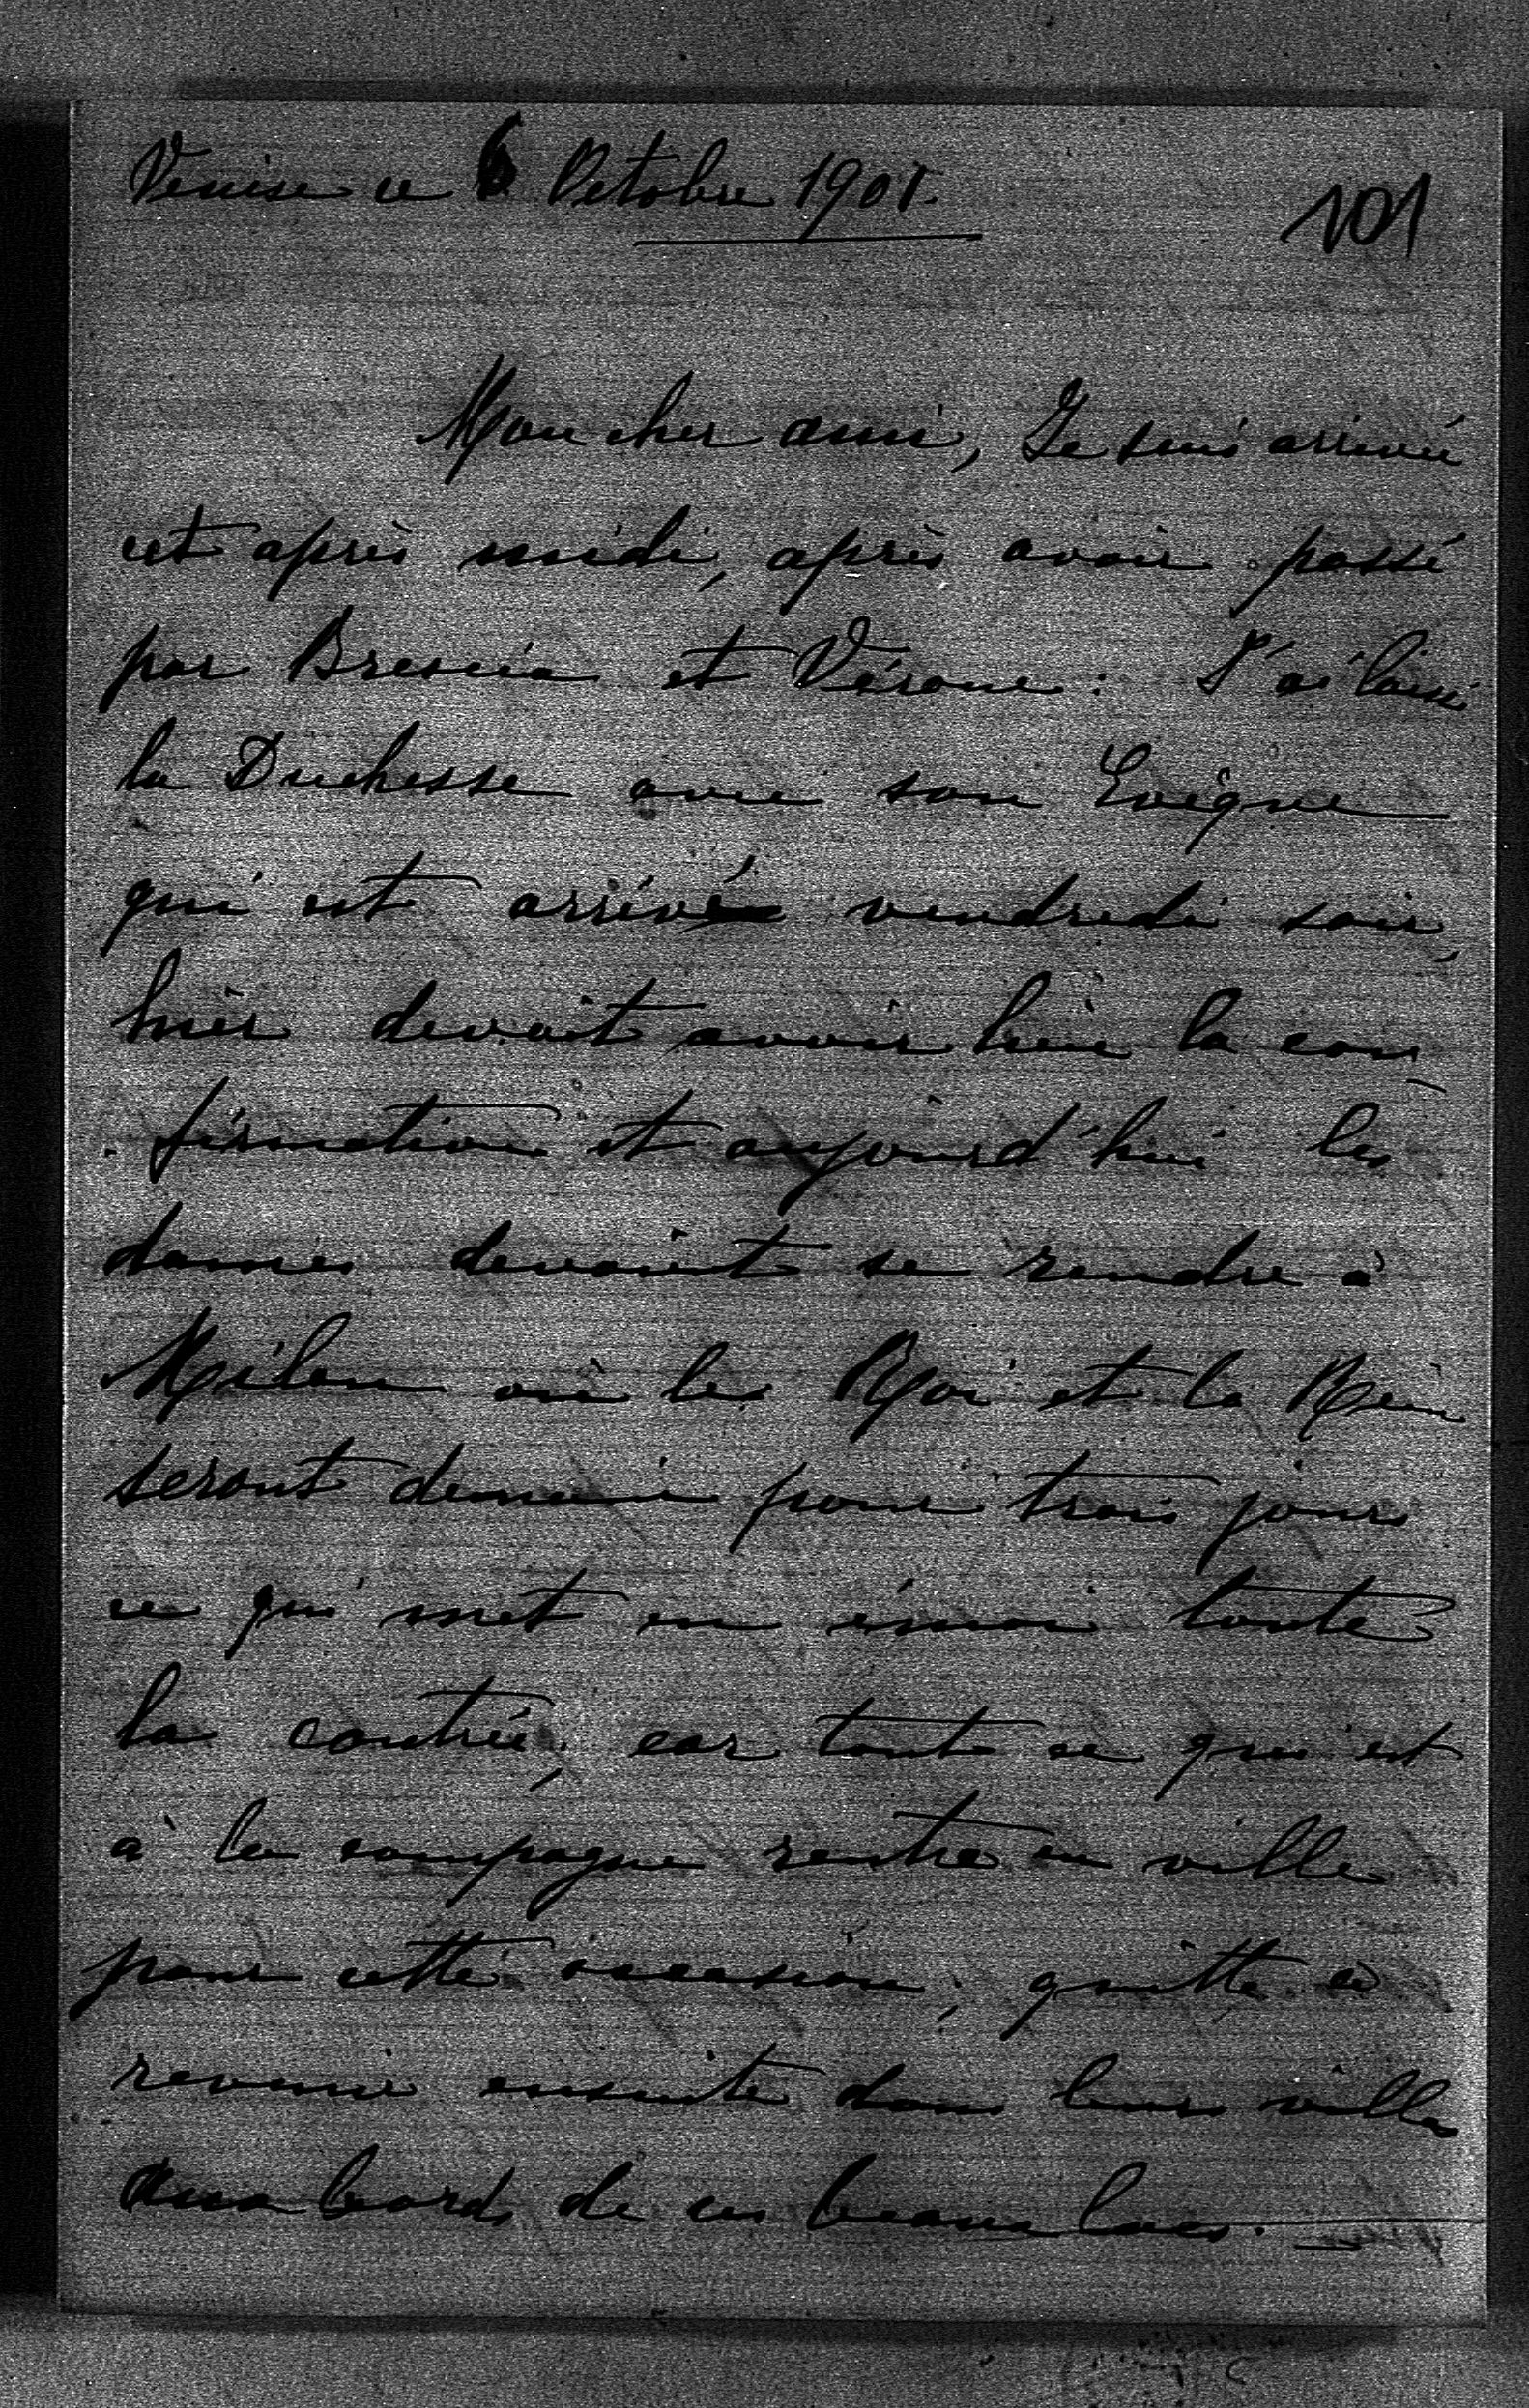 Venise ce 6 Octobre 1901.
101
Mon cher ami, Je suis arrivée
cet après midi, après avoir passé
par Brescia et Vérone. J'ai laissé
la Duchesse avec son Evêque
qui est arrivé vendredi soir,
hier devait avoir lieu la con
firmation et aujourd'hui les
dames devaient se rendre à
Milan où le Roi et la Reine
seront demain pour trois jours
ce qui met en émoi toute
la contrée, car tout ce qui est
à la campagne rentre en ville
pour cette occasion, quitte à
revenir ensuite dans leurs villas
aux bords de ces beaux lacs.